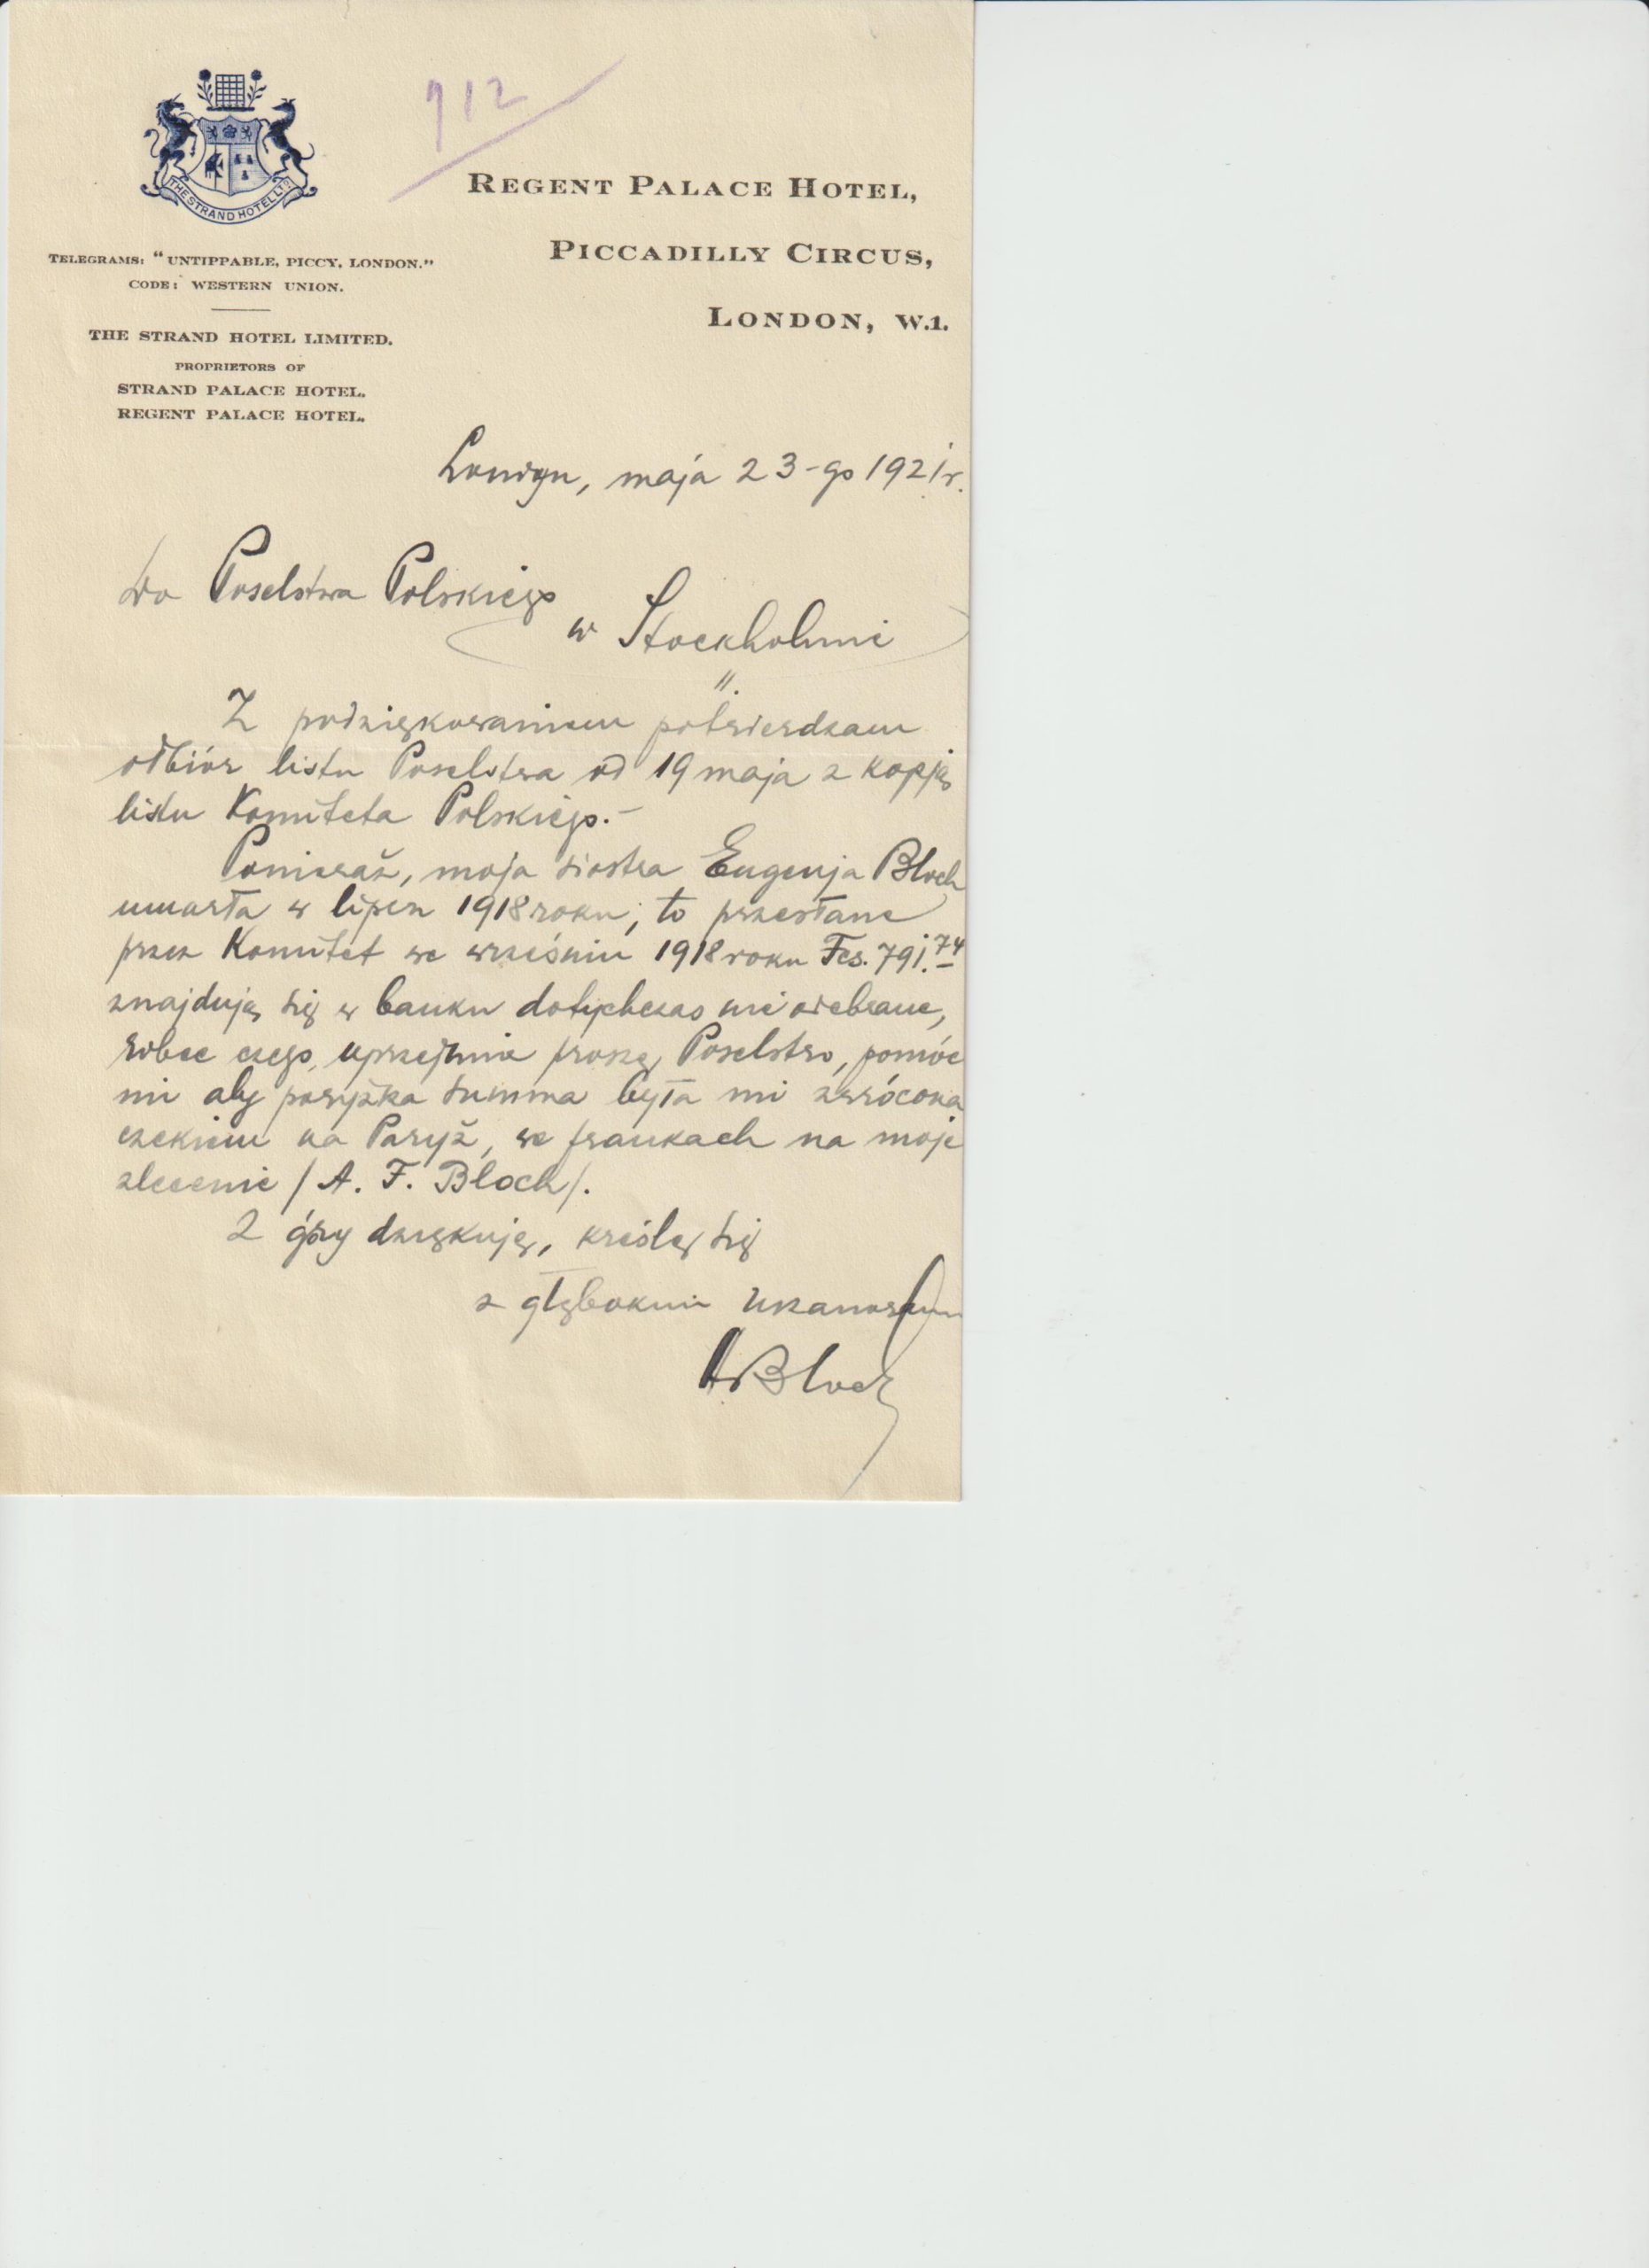 912
THE STRAND HOTEL LTD
REGENT PALACE HOTEL,
PICCADILLY CIRCUS,
LONDON, W.1.
TELEGRAMS: "UNTIPPABLE, PICCY, LONDON."
CODE: WESTERN UNION.
THE STRAND HOTEL LIMITED.
PROPRIETORS OF
STRAND PALACE HOTEL.
REGENT PALACE HOTEL.
Londyn, maja 23-go 1921r.
Do Poselstwa Polskiego
w Stockholmie
Z podziękowaniem potwierdzam
odbiór listu Poselstwa od 19 maja z kopją
listu Komiteta Polskiego.-
Ponieważ, moja siostra Eugenja Bloch
umarła w lipcu 1918 roku, to przesłane
przez Komitet we wrześniu 1918 roku Fcs. 791.74
znajdują się w banku dotychczas nie odebrane,
wobec czego, uprzejmie proszę Poselstwo, pomóc
mi aby powyżka summa była mi zwrócona
czekiem na Paryż, we frankach na moje
zlecenie / A. F. Bloch/.
Z góry dziękuję, kreślę się
z głębokim uszanowaniem
ABloch